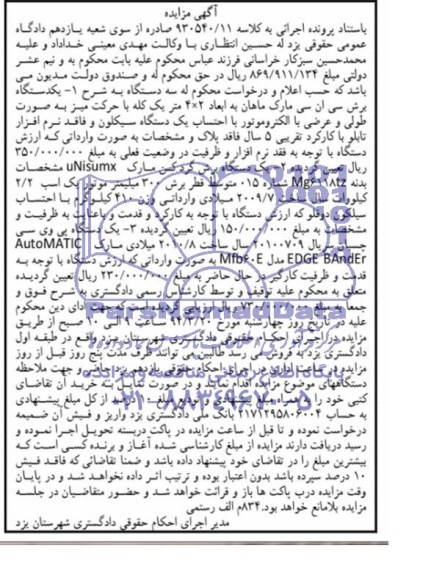 آگهی مزایده
باستناد پرونده اجرائی به کلاسه ۹۳۰۵۴۰/۱۱ صادره از سوی شعبه یازدهم دادگاه
عمومی حقوقی یزد له حسین انتظاری با وکالت مهدی معینی خداداد و علیه
محمدحسین سبزکار خراسانی فرزند عباس محکوم علیه بابت محکوم به و نیم عشر
دولتی مبلغ ۸۶۹/۹۱۱/۱۳۴ ریال در حق محکوم له و صندوق دولت مدیون می
باشد که حسب اعلام و درخواست محکوم له سه دستگاه به شرح ۱- یکدستگاه
برش سی ان سی مارک ماهان به ابعاد ۲×۴ متر یک کله با حرکت میز به صورت
طولی و عرضی با الکتروموتور با احتساب یک دستگاه سیکلون و فاقد نرم افزار
تابلو با کارکرد تقریبی ۵ سال فاقد پلاک و مشخصات به صورت وارداتی که ارزش
دستگاه با توجه به فقد نرم افزار و ظرفیت در وضعیت فعلی به مبلغ ۳۵۰/۰۰۰/۰۰۰
ریال تعیین گردیده ۲- یک دستگاه برش گردکن مارک uNisumx مشخصات
بدنه Mg۶۱۸tz شماره ۰۱۵ متوسط قطر برش ۳۰۰ میلیمتر موتور یک اسب ۲/۲
کیلووات سال ساخت ۲۰۰۹/۷ میلادی وارداتی وزن ۴۱۰ کیلوگرم با احتساب
سیلکون دوقلو که ارزش دستگاه با توجه به کارکرد و قدمت و باعنایت به ظرفیت و
مشخصات به مبلغ ۱۵۰/۰۰۰/۰۰۰ ریال تعیین گردیده ۳- یک دستگاه پی وی سی
چسبان سریال ۲۰۱۰۰۷۰۹ سال ساخت ۲۰۱۰/۸ میلادی مارک AutoMATIC
EDGE BAndEr مدل Mfb۶۰E به صورت وارداتی که ارزش دستگاه با توجه به
قدمت و ظرفیت کارگیر در حال حاضر به مبلغ ۲۳۰/۰۰۰/۰۰۰ ریال تعیین گردیده
متعلق به محکوم علیه توقیف و توسط کارشناس رسمی دادگستری به شرح فوق و
جمعا به مبلغ ۷۳۰/۰۰۰/۰۰۰ ریال ارزیابی گردیده است که جهت ادای دین محکوم
علیه در تاریخ روز چهارشنبه مورخ ۹۴/۳/۲۰ ساعت ۹ الی ۱۰ صبح از طریق
مزایده در اجرای احکام حقوقی دادگستری شهرستان یزد واقع در طبقه اول
دادگستری یزد به فروش می رسد طالبین می توانند ظرف مدت پنج روز قبل از روز
مزایده در ساعت اداری در اجرای احکام حقوقی یازدهم یزد حاضر و جهت ملاحظه
دستگاههای موضوع مزایده اقدام نمایند و در صورت تمایل به خرید آن تقاضای
کتبی خود را به همراه مبلغ پیشنهادی و واریز مبلغ ۱۰ درصد از کل مبلغ پیشنهادی
به حساب ۲۱۷۱۲۹۵۸۰۶۰۰۴ بانک ملی دادگستری یزد واریز و فیش آن ضمیمه
درخواست نموده و تا قبل از ساعت مزایده در پاکت دربسته تحویل اجرا نموده و
رسید دریافت دارند مزایده از مبلغ کارشناسی شده آغاز و برنده کسی است که
بیشترین مبلغ را در تقاضای خود پیشنهاد داده باشد و ضمنا تقاضائی که فاقد فیش
۱۰ درصد سپرده باشد بدون اعتبار بوده و ترتیب اثر داده نخواهد شد و در پایان
وقت مزایده درب پاکت ها باز و قرائت خواهد شد و حضور متقاضیان در جلسه
مزایده بلامانع خواهد بود.۸۳۴م الف رستمی
مدیر اجرای احکام حقوقی دادگستری شهرستان یزد
ParsNamadData
۰۲۱-۸۸۳۴۹۶۷۰-۵